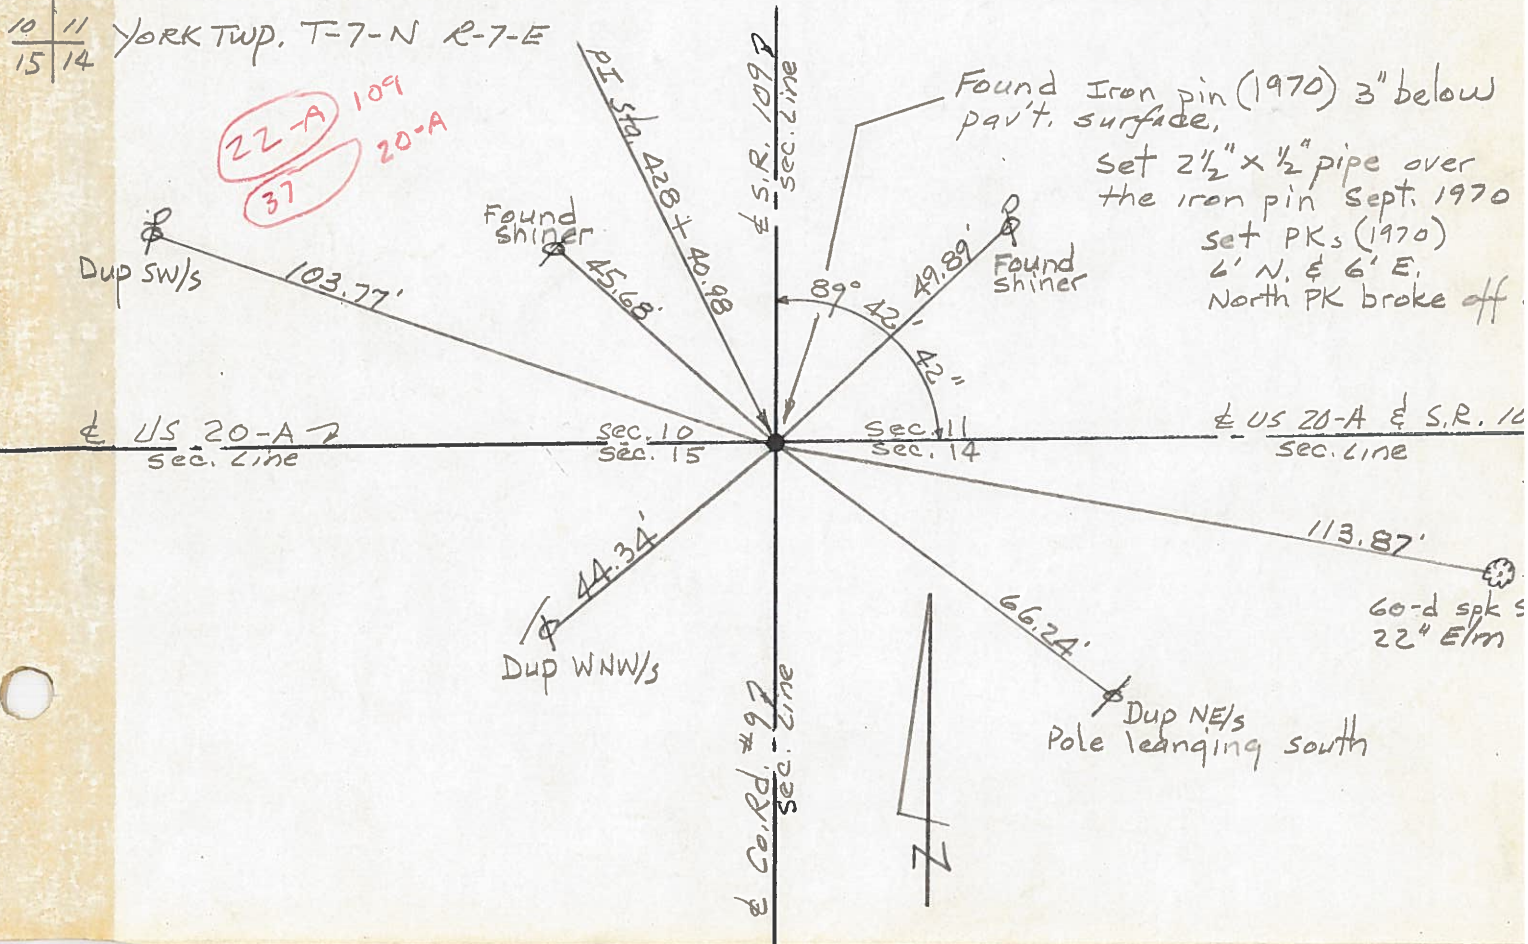 10 11 York Twp. T-7-N R-7-E
15 14
22-A 109
37 20-A
PI Sta. 428+40.98
℄ S.R. 109
Sec. Line
Found Iron pin (1970) 3" below
pav't. surface.
Set 2½" x ½" pipe over
the iron pin Sept. 1970
set PKs (1970)
6' N. & 6' E.
North PK broke off
Dup SW/s
103.77'
Found
Shiner
45.68'
49.89'
Found
Shiner
89° 42' 42"
℄ US 20-A
Sec. Line
Sec. 10
Sec. 15
Sec. 11
Sec. 14
℄ US 20-A & S.R. 10
Sec. Line
44.34'
Dup WNW/s
113.87'
60-d spk S
22" Elm
66.24'
Dup NE/s
Pole leanging south
℄ Co. Rd. #97
Sec. Line
N